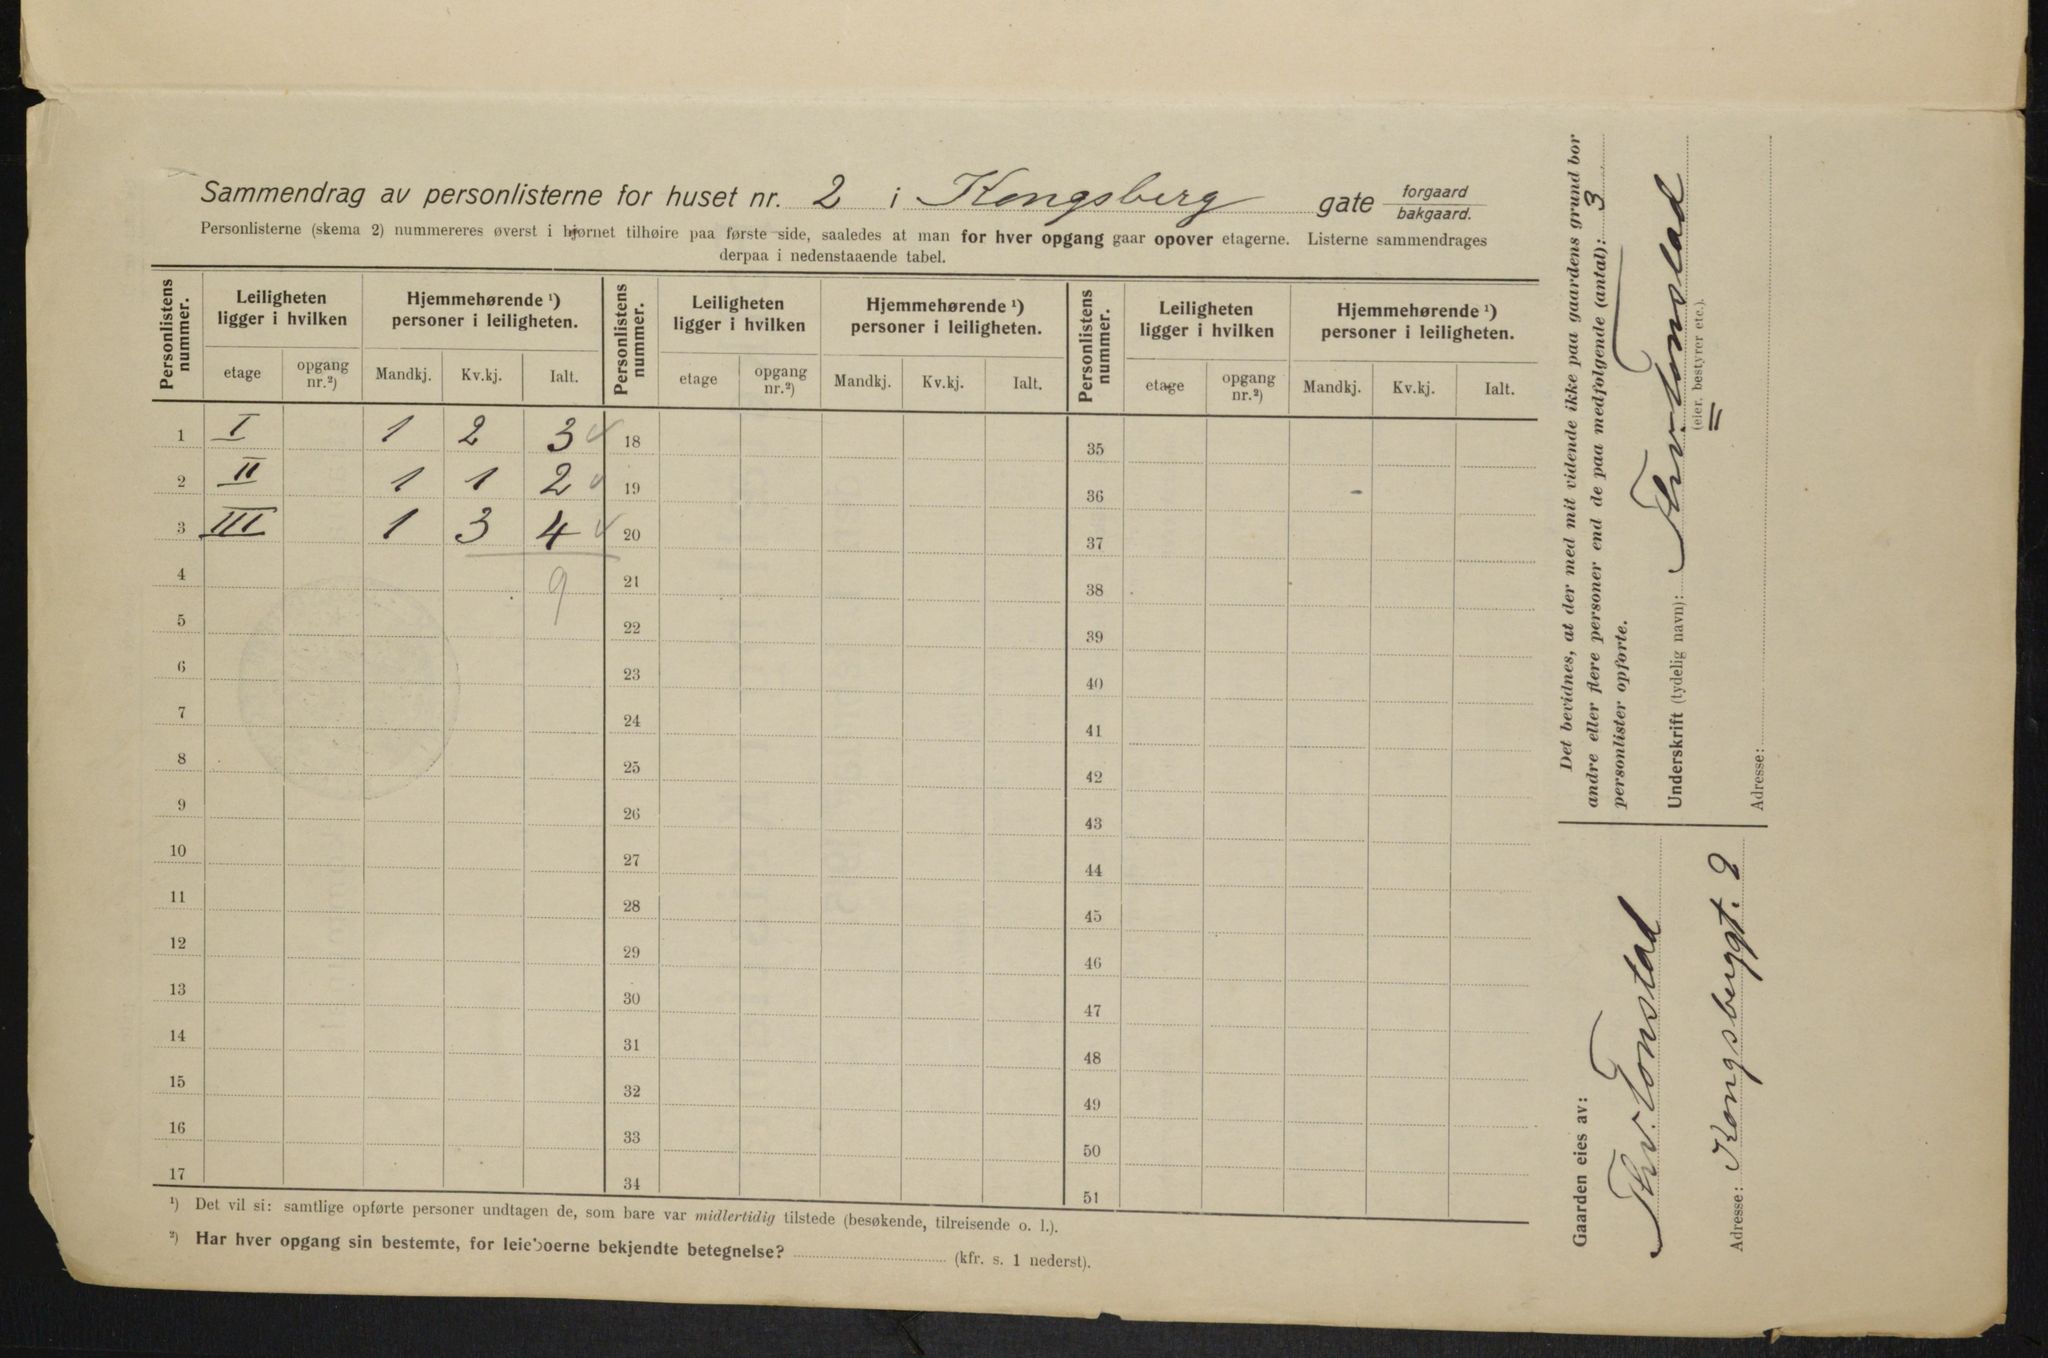 Sammendrag av personlisterne for huset nr. 2 i Kongsberg gate forgaard
bakgaard.
Personlisterne (skema 2) nummereres øverst i hjørnet tilhøire paa første side, saaledes at man for hver opgang gaar opover etagerne. Listerne sammendrages
derpaa i nedenstaaende tabel.
Personlistens nummer. Leiligheten ligger i hvilken Hjemmehørende ¹) personer i leiligheten. Personlistens nummer. Leiligheten ligger i hvilken Hjemmehørende ¹) personer i leiligheten. Personlistens nummer. Leiligheten ligger i hvilken Hjemmehørende ¹) personer i leiligheten.
etage opgang nr.²) Mandkj. Kv.kj. Ialt. etage opgang nr.²) Mandkj. Kv.kj. Ialt. etage opgang nr.²) Mandkj. Kv.kj. Ialt.
1 I 1 2 3 18 35
2 II 1 1 2 19 36
3 III 1 3 4 20 37
4 9 21 38
5 22 39
6 23 40
7 24 41
8 25 42
9 26 43
10 27 44
11 28 45
12 29 46
13 30 47
14 31 48
15 32 49
16 33 50
17 34 51
¹) Det vil si: samtlige opførte personer undtagen de, som bare var midlertidig tilstede (besøkende, tilreisende o. l.).
²) Har hver opgang sin bestemte, for leieboerne bekjendte betegnelse? (kfr. s. 1 nederst).
Det bevidnes, at der med mit vidende ikke paa gaardens grund bor
andre eller flere personer end de paa medfølgende (antal): 3
personlister opførte.
Underskrift (tydelig navn): Thv. Tonstad
(eier, bestyrer etc.).
Adresse:
Gaarden eies av:
Thv. Tonstad
Adresse: Kongsberggt. 2